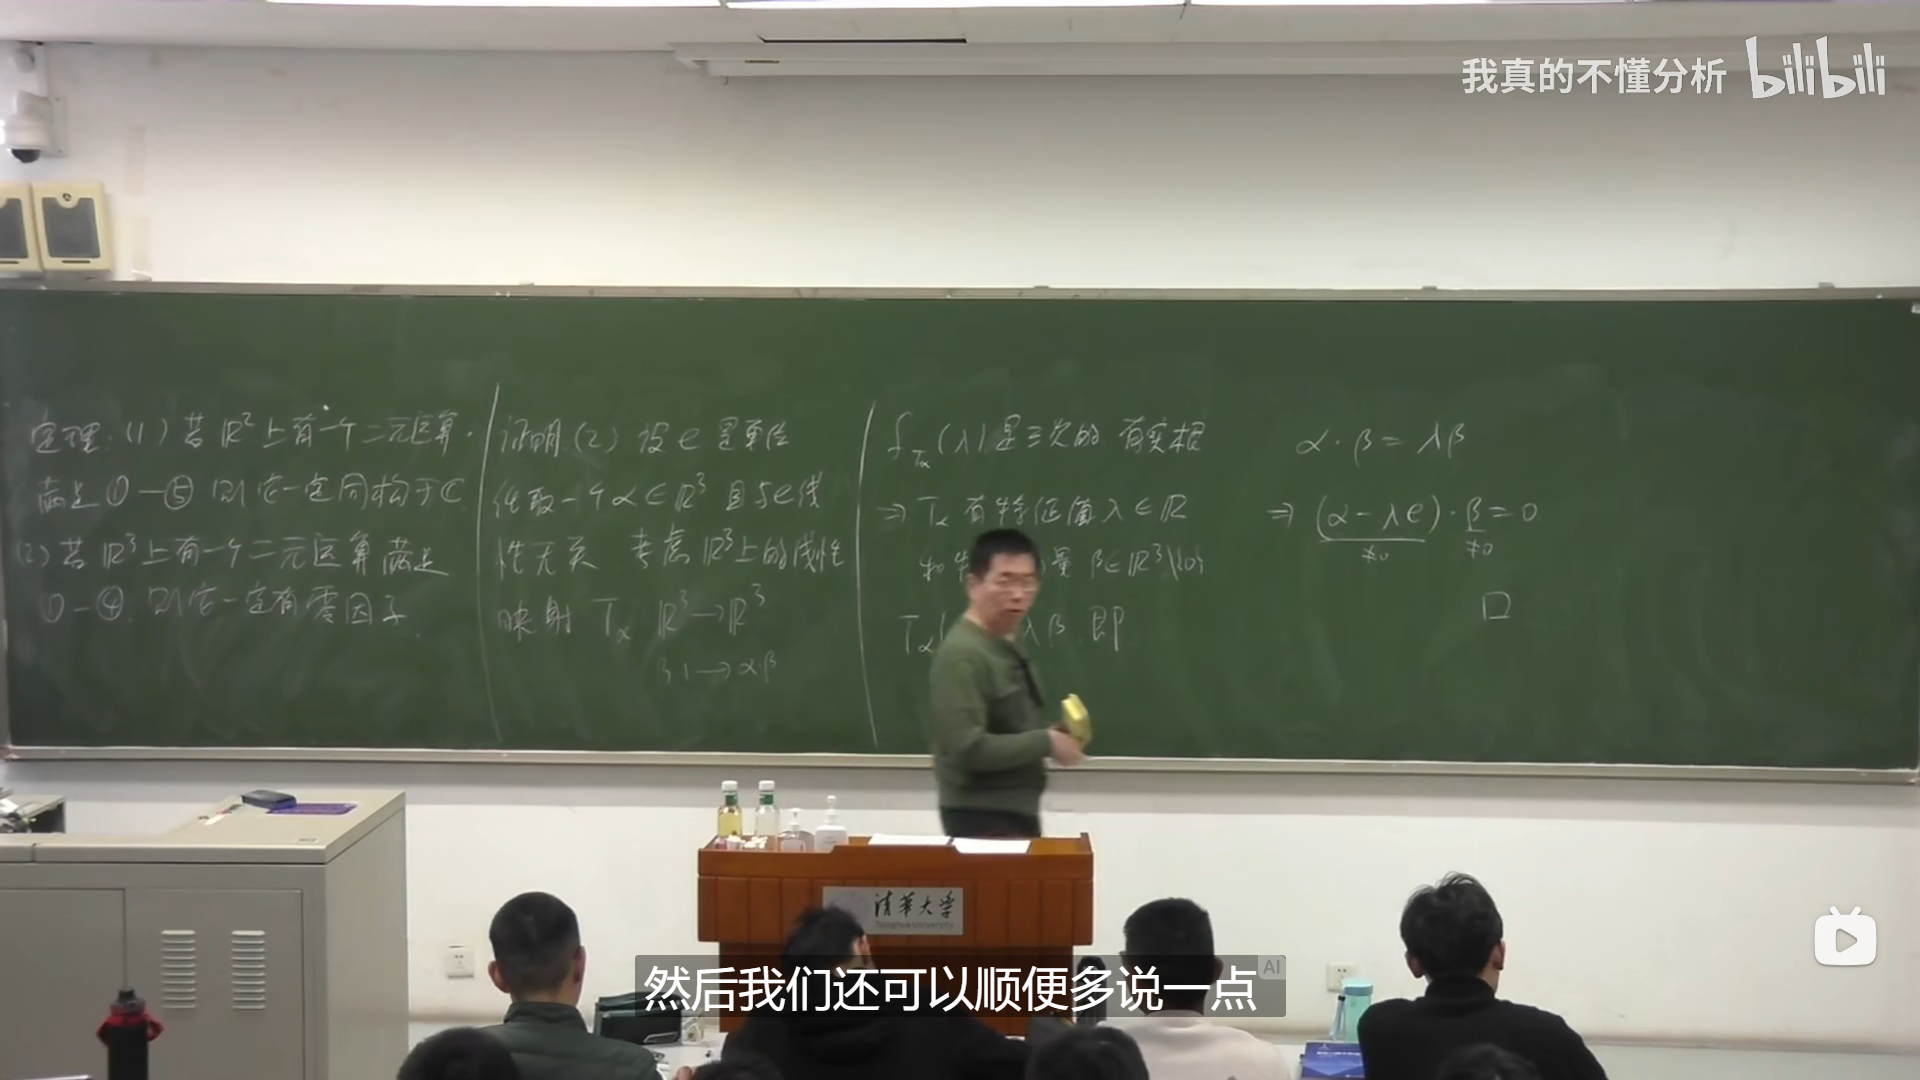 我真的不懂分析 bilibili
定理.(1) 若 ℝ² 上有一个二元运算·
满足 ①—⑤ 则它一定同构于 ℂ
(2) 若 ℝ³ 上有一个二元运算满足
①—④. 则它一定有零因子.
证明.(2) 设 e 是单位
任取一个 α∈ℝ³ 且与 e 线
性无关 考虑 ℝ³ 上的线性
映射 T_α ℝ³→ℝ³
β ↦ α·β
f_{T_α}(λ) 是三次的 有实根
⇒ T_α 有特征值 λ∈ℝ
和特 量 β∈ℝ³\{0}
T_α( λβ. 即
α·β = λβ
⇒ (α-λe)·β = 0
≠0 ≠0
□
清华大学
Tsinghua University
AI
然后我们还可以顺便多说一点